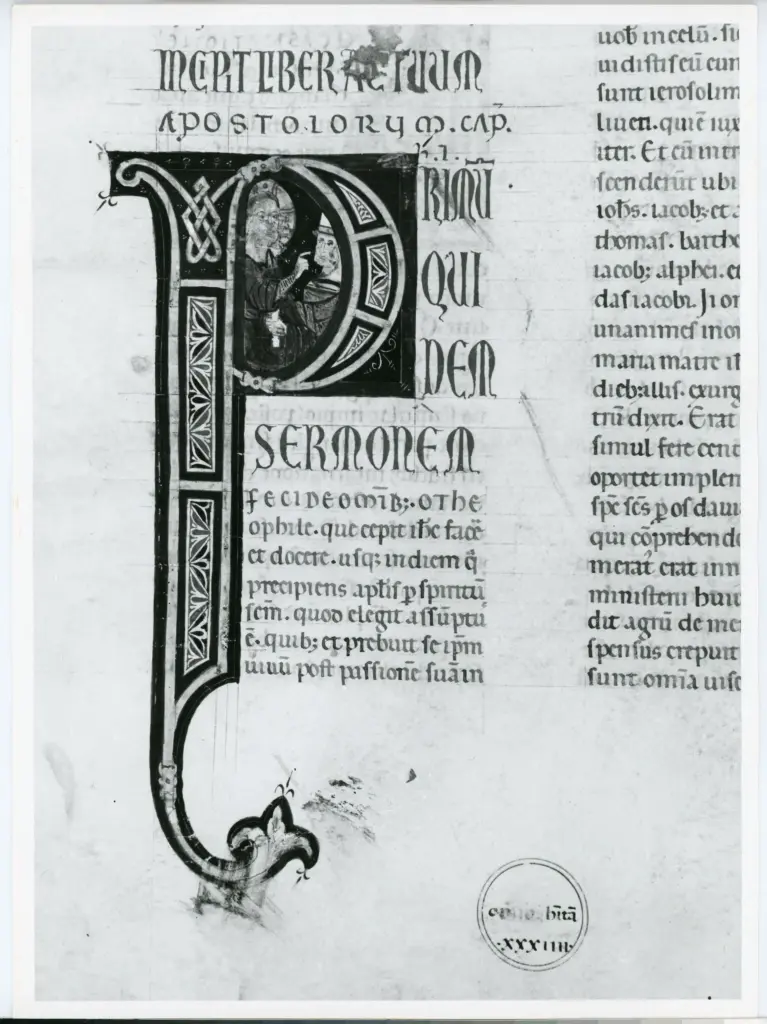 INCIPIT LIBER ACTUUM
APOSTOLORUM. CAP.
PRIMŪ
QUI
DEM
SERMONEM
FECI DE OMĪB; O THE
ophile. que cepit ih̄c facē
et docere. usq; in diem q̄
precipiens apl̄is p̱ spiritū
sc̄m. quos elegit assūptu
ē. quib; et prebuit se ip̄m
uiuū post passionē suā in
uob̄ in celū. sic
uidistis eū eun
sunt ierosolim
liueti. qui ē iux
iter. Et cū intr
scenderūt ubi
ioh̄s. iacob; et
thomas. barthο
iacob; alphei. et
das iacobi. Hi om
unanimes
maria matre ih
dieb; illis. exurg
trū dixit. Erat
simul fere cent
oportet implen
sp̄c sc̄s p̱ os daui
qui cōprehende
merat' erat in n
ministerii huiu
dit agrū de mer
spensus crepuit
sunt omīa uisc
bītā
.XXXIIII.